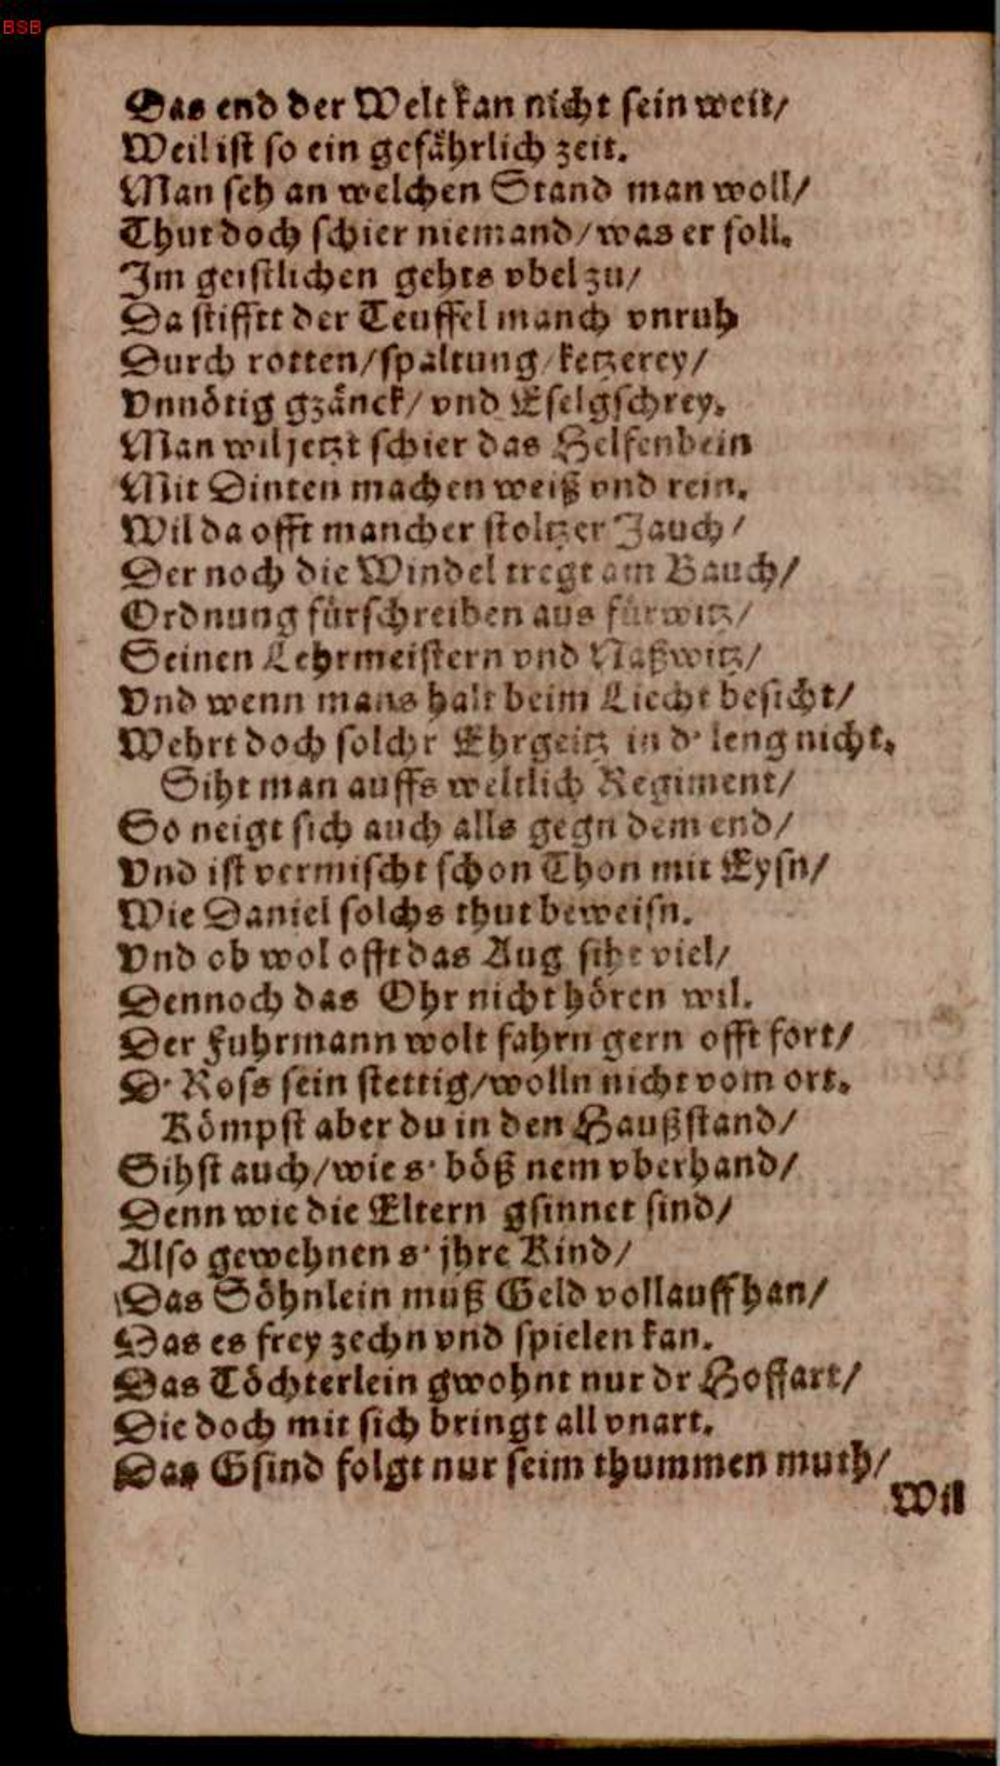 BSB
Das end der Welt kan nicht ſein weit/
Weil iſt ſo ein gefährlich zeit.
Man ſeh an welchen Stand man woll/
Thut doch ſchier niemand/was er ſoll.
Im geiſtlichen gehts vbel zu/
Da ſtifftt der Teuffel manch vnruh
Durch rotten/ſpaltung/ketzerey/
Vnnötig gzänck/ vnd Eſelgſchrey.
Man wil jetzt ſchier das Helfenbein
Mit Dinten machen weiß vnd rein.
Wil da offt mancher ſtoltzer Jauch/
Der noch die Windel tregt am Bauch/
Ordnung fürſchreiben aus fürwitz/
Seinen Lehrmeiſtern vnd Naßwitz/
Vnd wenn mans halt beim Liecht beſicht/
Wehrt doch ſolchr Ehrgeitz in d' leng nicht.
Siht man auffs weltlich Regiment/
So neigt ſich auch alls gegn dem end/
Vnd iſt vermiſcht ſchon Thon mit Eyſn/
Wie Daniel ſolchs thut beweiſn.
Vnd ob wol offt das Aug ſiht viel/
Dennoch das Ohr nicht hören wil.
Der Fuhrmann wolt fahrn gern offt fort/
D' Roſs ſein ſtettig/wolln nicht vom ort.
Kömpſt aber du in den Haußſtand/
Sihſt auch/wie s' böß nem vberhand/
Denn wie die Eltern gſinnet ſind/
Alſo gewehnen s' jhre Kind/
Das Söhnlein muß Geld vollauff han/
Das es frey zechn vnd ſpielen kan.
Das Töchterlein gwohnt nur dr Hoffart/
Die doch mit ſich bringt all vnart.
Das Gſind folgt nur ſeim thummen muth/
Wil